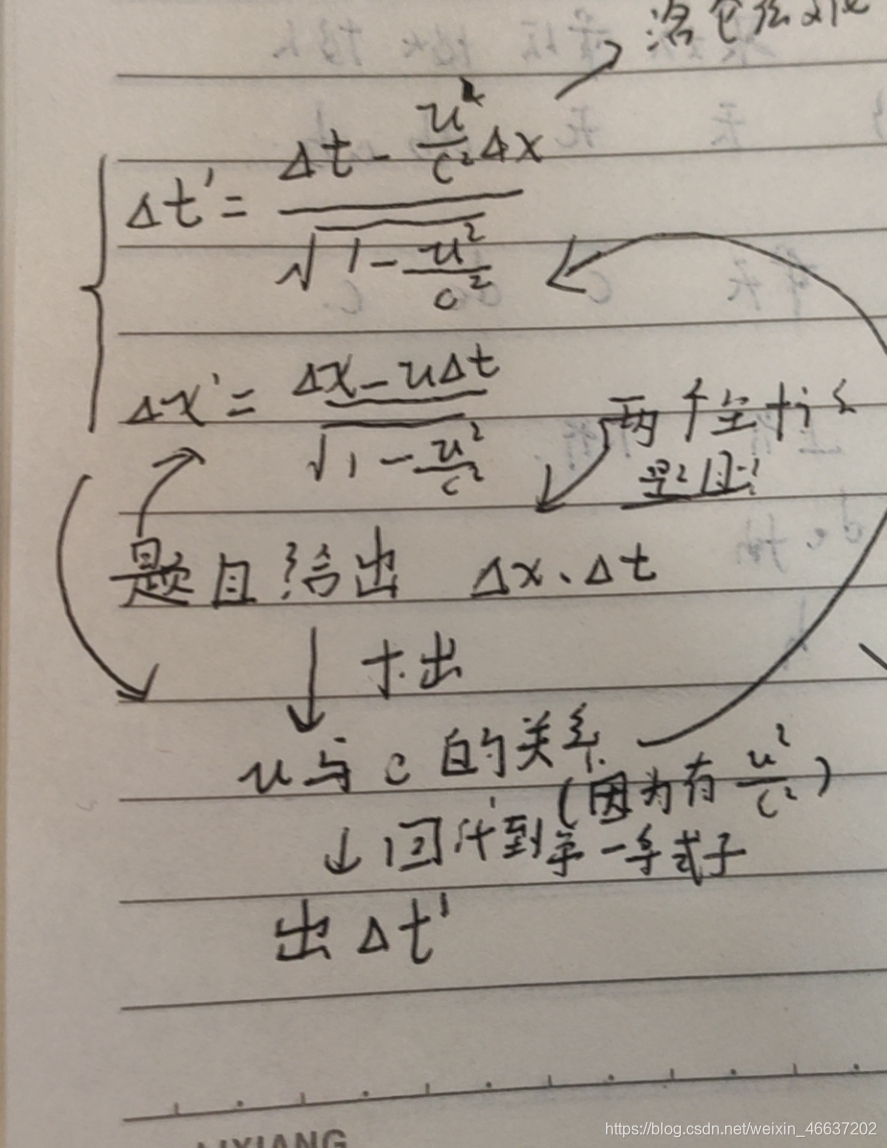 Δt' = (Δt - u²/c² Δx) / √(1 - u²/c²)
Δx' = (Δx - uΔt) / √(1 - u²/c²)
两个坐标
题目给出 Δx、Δt
↓ 求出
u与c的关系
(因为有 u²/c²)
↓ 回代到第一个式子
出 Δt'
LIXIANG
https://blog.csdn.net/weixin_46637202